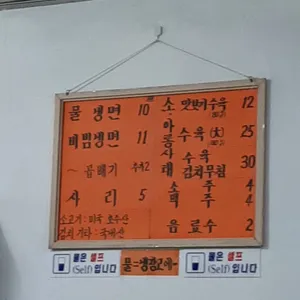 물 냉면 10
비빔냉면 11
~ 곱빼기 추가2
사 리 5
소고기: 미국 호주산
김치 기타: 국내산
소 맛보기 수육 12
아롱사태 수육 (大) 25
수육 김치무침 30
소 주 4
맥 주 4
음료수 2
물은 셀프
(Self) 입니다
물은 셀프
(Self) 입니다